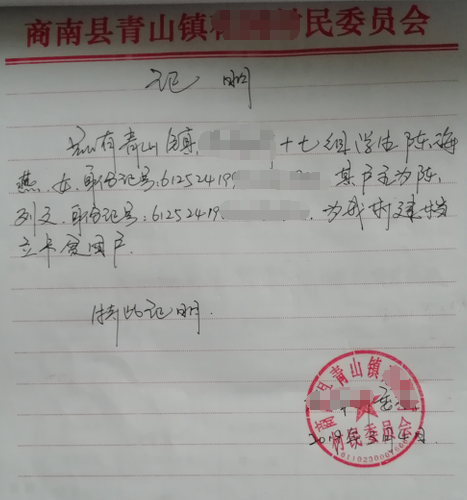 商南县青山镇 村民委员会
证明
兹有青山镇 十七组学生陈海
燕,女,身份证号:61252419 其户主为陈
列文,身份证号:61252419 为我村建档
立卡贫困户.
特此证明.
商南县青山镇
村民委员会